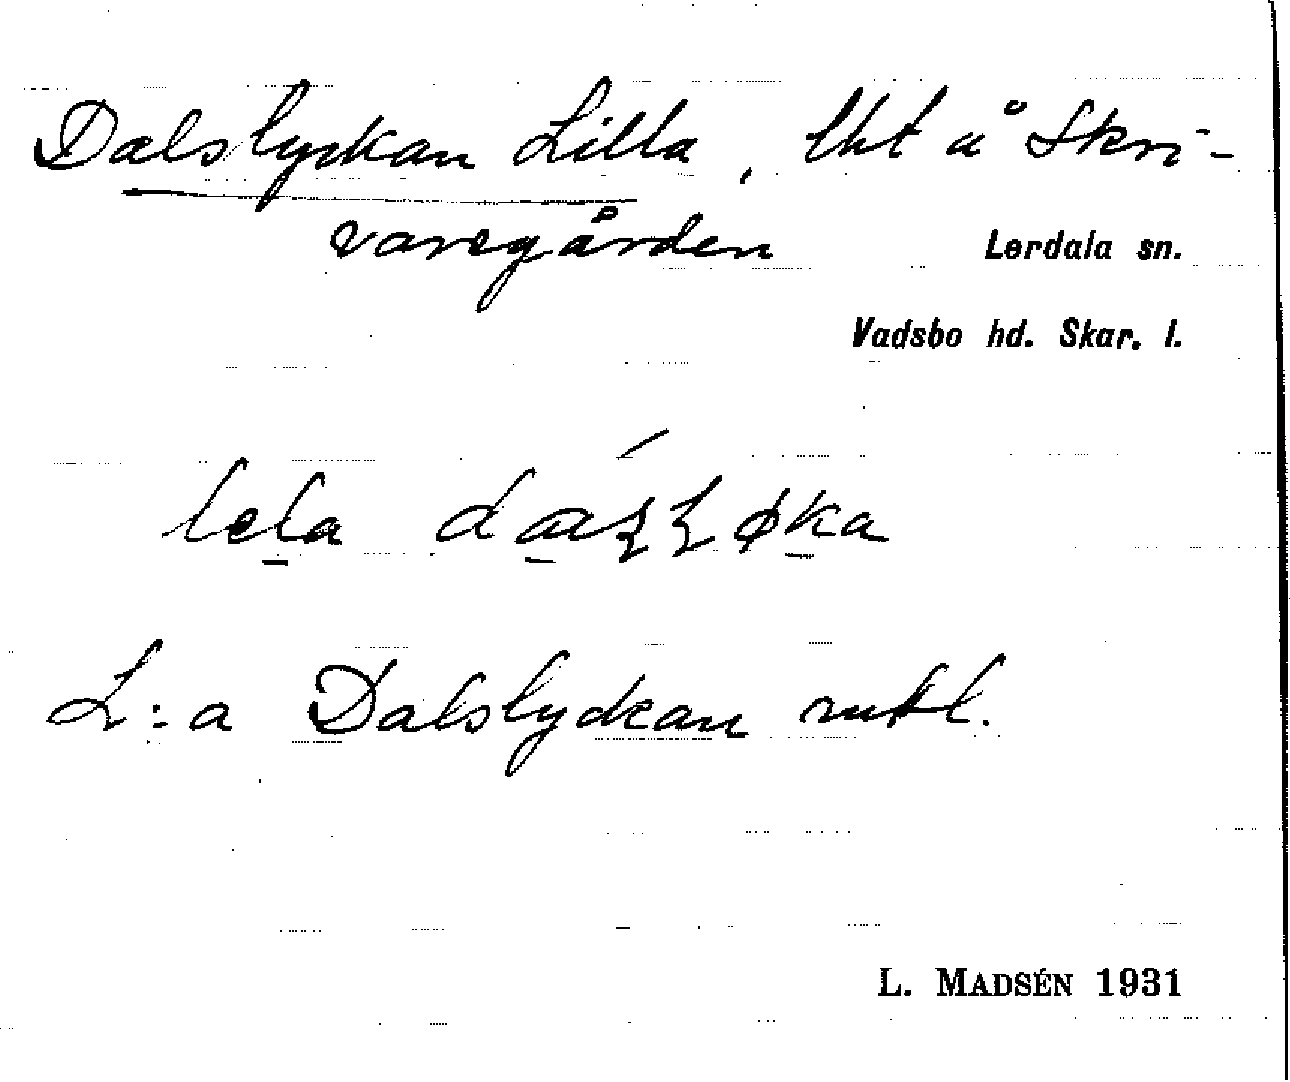 Dalslyckan Lilla, lht å Skri-
varegården
Lerdala sn.
Vadsbo hd. Skar. l.
lela
L:a Dalslyckan mtl.
L. MADSÉN 1931